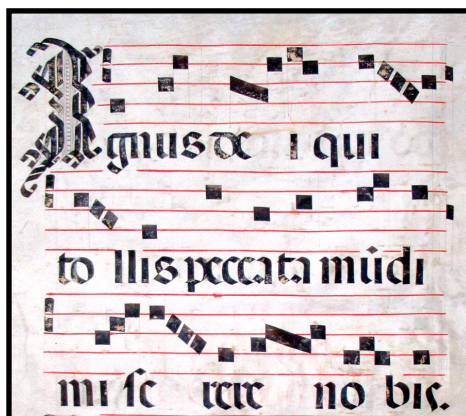 Agnus de i qui
to llis peccata mũdi
mi se rere no bis.